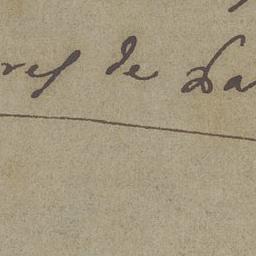 res de Da